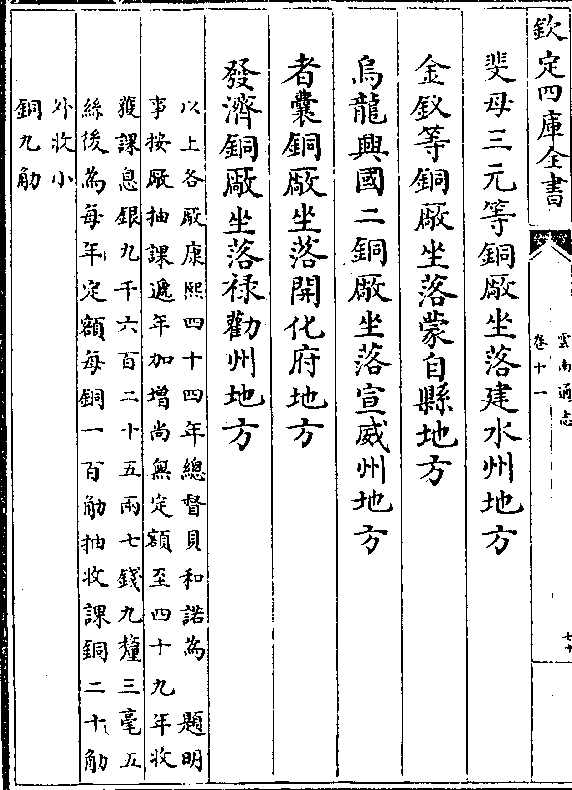 欽定四庫全書
雲南通志
卷十一
斐母三元等銅厰坐落建水州地方
金釵等銅厰坐落蒙自縣地方
烏龍興國二銅厰坐落宣威州地方
者囊銅厰坐落開化府地方
發濟銅厰坐落禄勸州地方
以上各厰康熙四十四年總督貝和諾為 題明
事按厰抽課遞年加增尚無定額至四十九年收
獲課息銀九千六百二十五兩七錢九釐三毫五
絲後為每年定額每銅一百觔抽收課銅二十觔
外收小
銅九觔